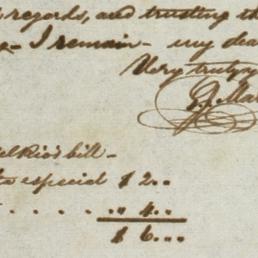 regards, and trusting th
I remain - my dea
Very truly y
bill -
especial $ 2...
. . . . . " 4...
$ 6...